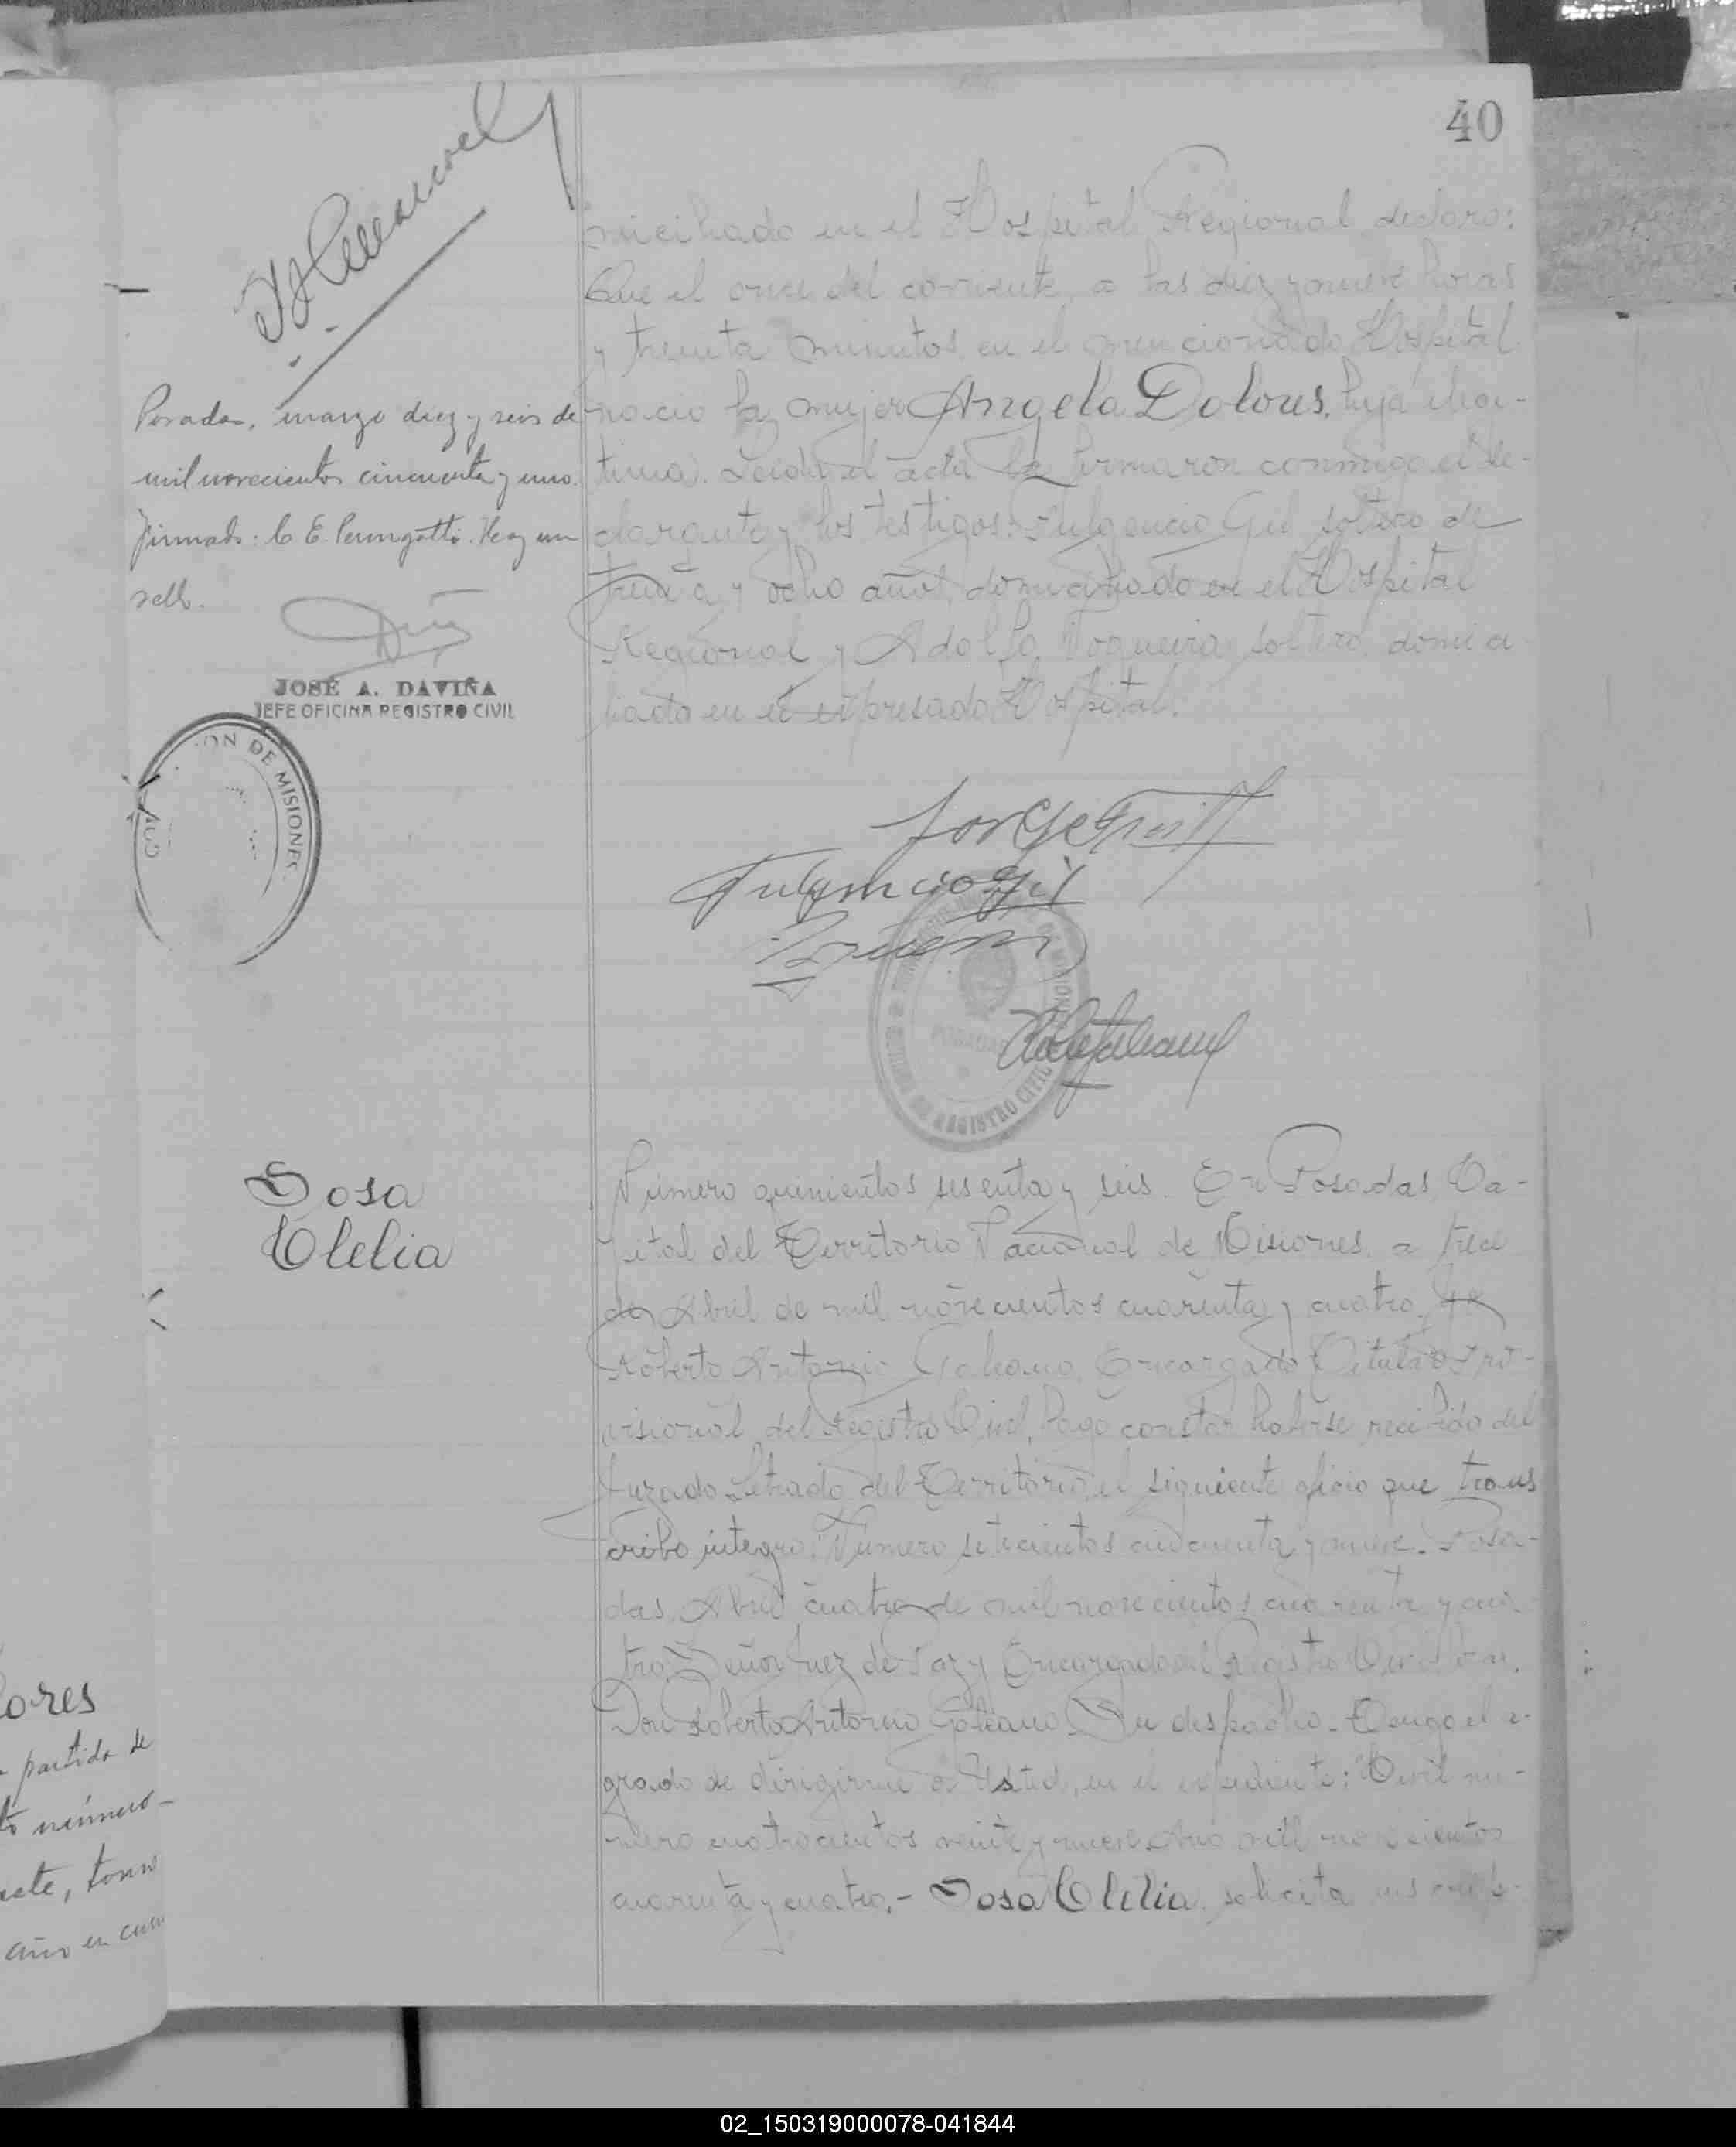 40
Posadas, marzo diez y seis de
mil novecientos cincuenta y uno.
firmado: C E Hay un
sello.
JOSÉ A. DAVIÑA
JEFE OFICINA REGISTRO CIVIL
ON DE MISIONES
miciliado en el Hospital Regional declaro:
Que el once del corriente, a las diez y nueve horas
y treinta minutos, en el mencionado Hospital
nacio la mujer Angela Dolores, hija ilegi-
tima. Leida el acta la firmaron conmigo el de-
clarante y los testigos: Fulgencio Gil soltero de
treinta y ocho años, domiciliado en el Hospital
Regional y Adolfo Noqueira, soltero, domici-
liado en el expresado Hospital.
Fulgencio Gil
POSADAS
REGISTRO CIVIL
Sosa
Clelia
Número quinientos sesenta y seis. En Posadas Ca-
pital del Territorio Nacional de Misiones, a trece
de Abril de mil novecientos cuarenta y cuatro. Yo
Roberto Antonio Galeano, Encargado Titular Pro-
visional del Registro Civil, hago constar haberse recibido del
Juzgado Letrado del Territorio, el siguiente oficio que trans
cribo integro: Número setecientos cincuenta y nueve. Posa-
das, Abril cuatro de mil novecientos cuarenta y cua
tro. Señor Juez de Paz y Encargado del Registro Civil
Don Roberto Antonio Galeano. Su despacho. Tengo el a-
grado de dirigirme a Usted, en el expediente: Civil nú-
mero cuatrocientos veinte y nueve Año mil novecientos
cuarenta y cuatro.- Sosa Clelia, solicita inscrip-
ores
partida de
to número-
ete, tomo
año en
02_150319000078-041844